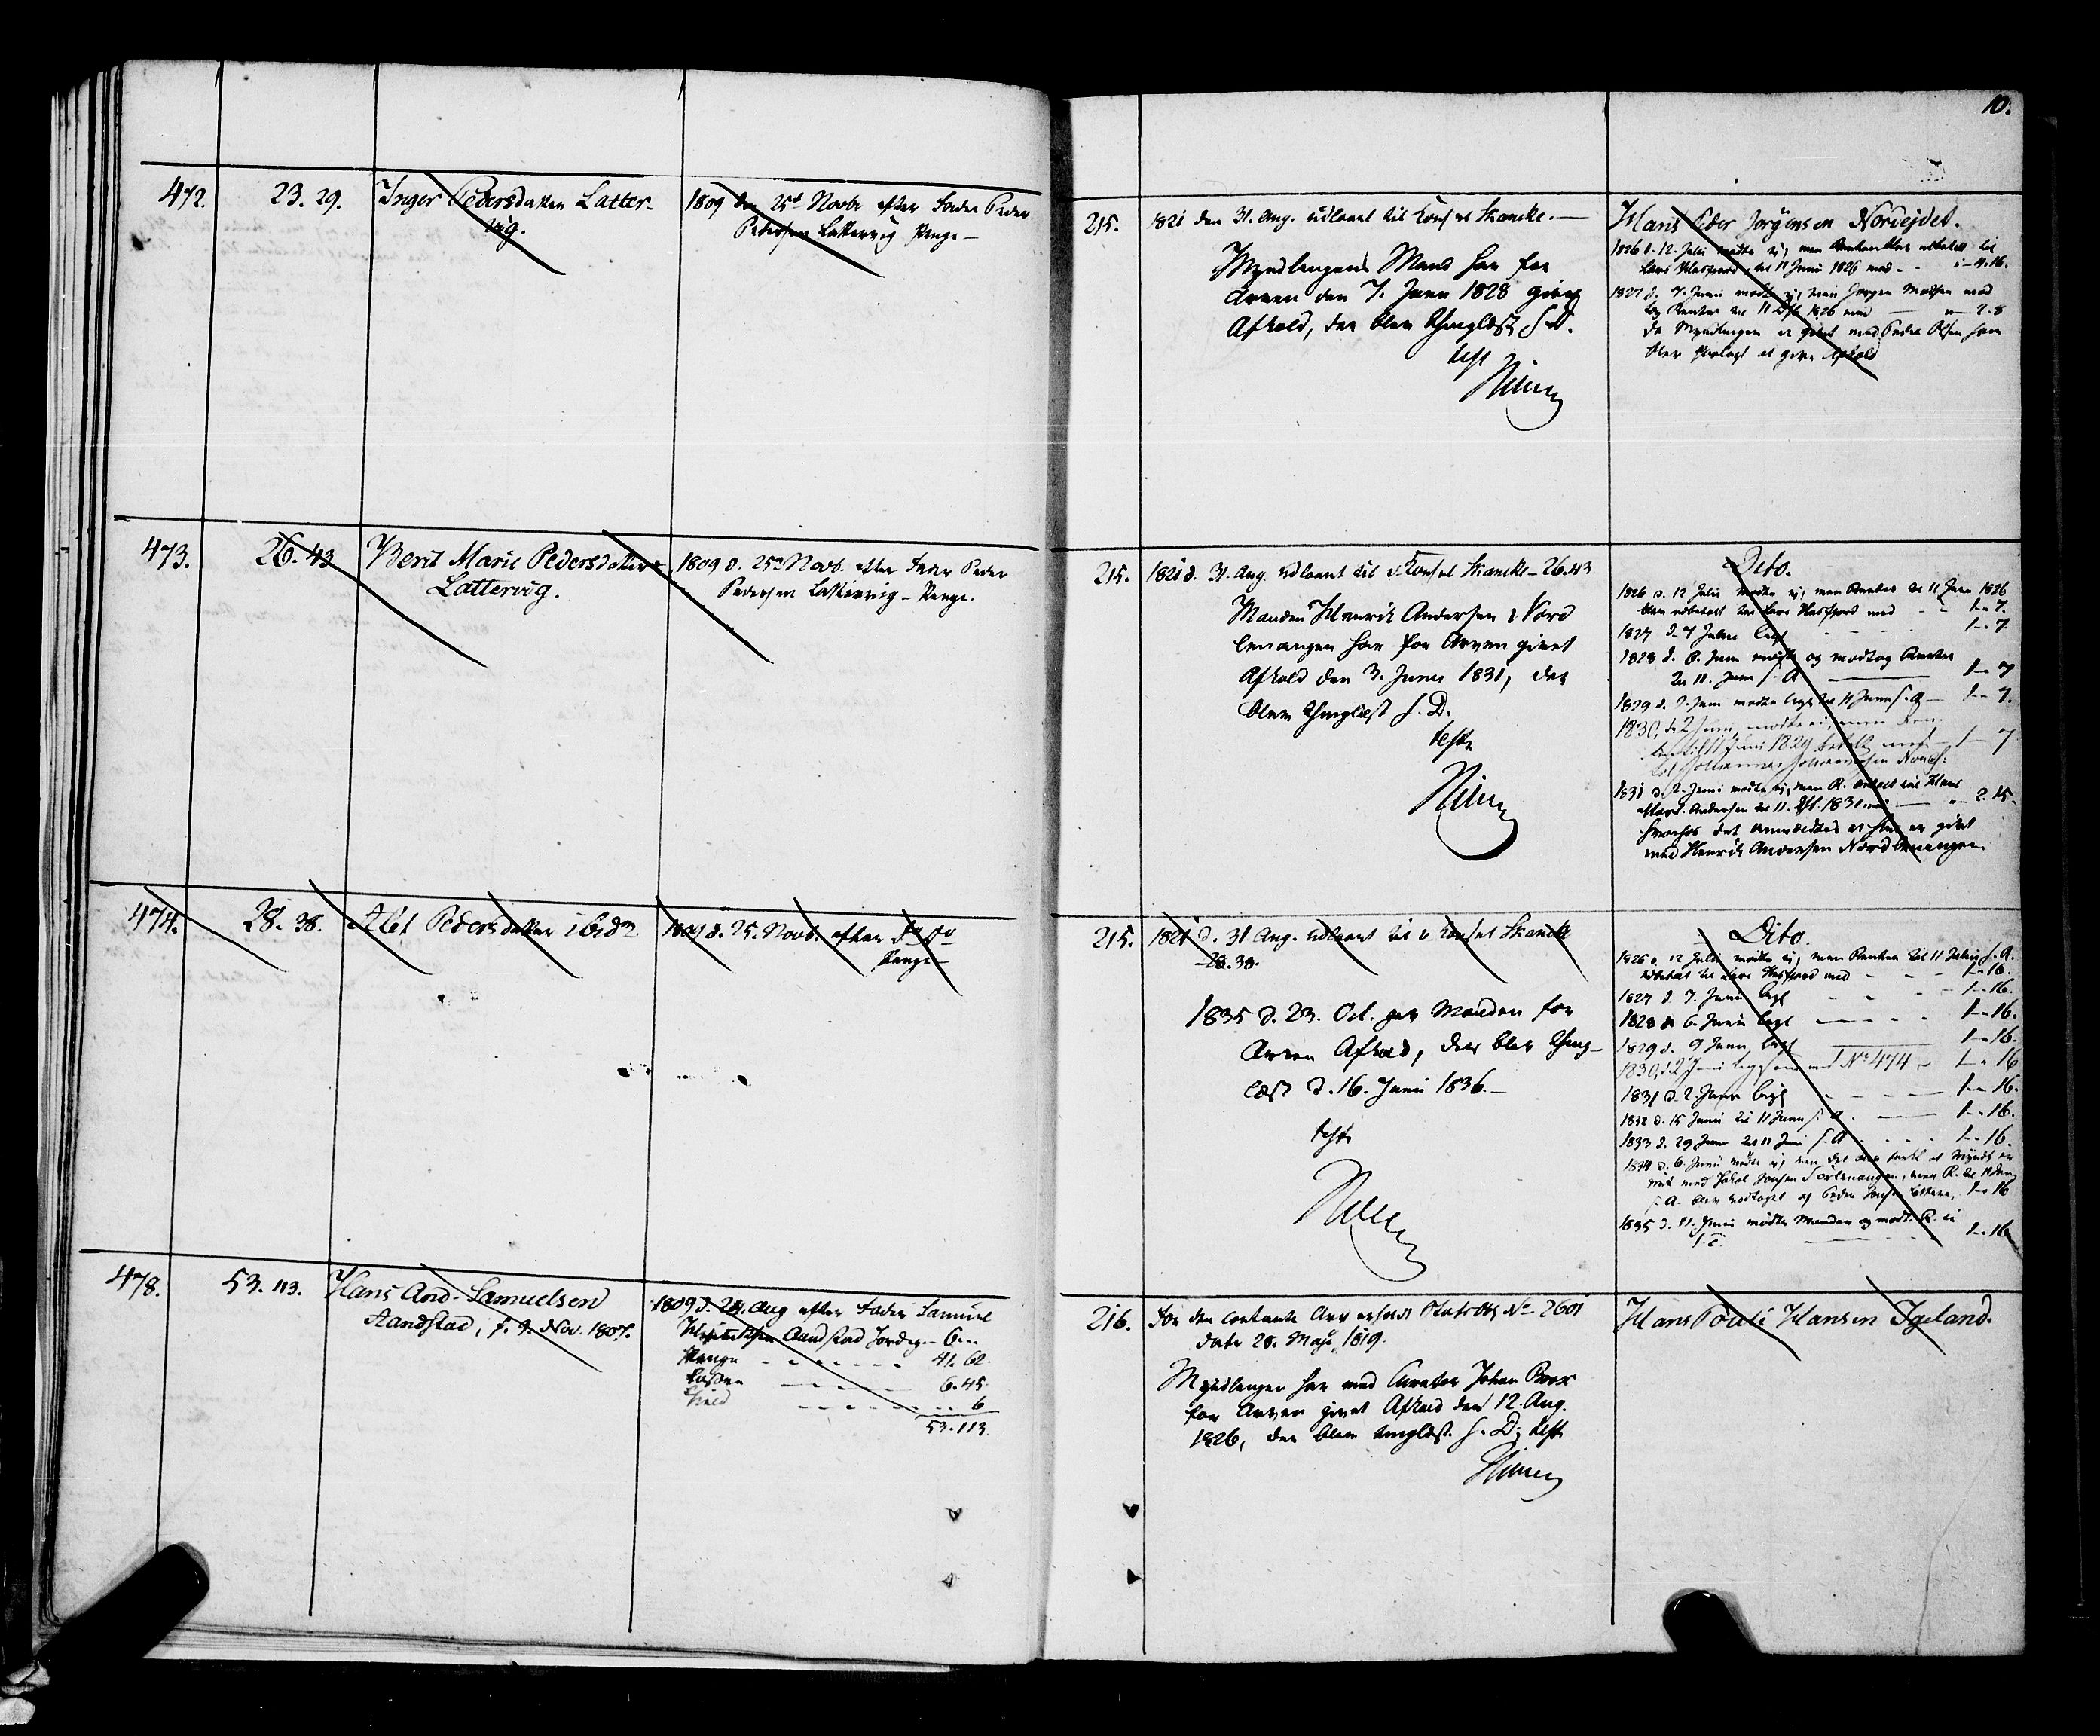 10.
472.
23. 29.
Inger Pedersdatter Latter-
vig.
1809 den 25de Novbr efter Fader Peder
Pedersen Lattervig Penge —
215.
1821 den 31. Aug. udlaant til Consul Krancke. —
Myndlingens Mand har for
Arven den 7. Juni 1828 givet
Afkald, der blev thinglæst s. D.
test
Hans Peder Jørgensen Nordejdet.
1826 d. 12. Julii mødte ej, men Renten blev udbetalt til
Lars til 11 Junii 1826 med - - 1 - 4. 16.
1827 d. 7. Junii mødte ej, men Jørgen Madsen mod
tog Renter til 11 1826 med — " - 2. 8
da Myndlingen er givt med Peder Olsen som
blev paalagt at give Afkald
473.
26. 43
Berit Marie Pedersdatter
Lattervig.
1809 d. 25de Novb. efter Fader Peder
Pedersen Lattervig - Penge.
215.
1821 d. 31. Aug. udlaant til Consul Krancke - 26.43
Manden Henrik Andersen i Nord
lenangen har for Arven givet
Afkald den 3. Junii 1831, der
blev thinglæst s. D.
teste
Dito.
1826 d. 12 Julii mødte ej, men Renter til 11 Junii 1826
blev udbetalt til Lars med - - 1 - 7.
1827 d. 7 Julii ligs. 1 - 7.
1828 d. 6. Juni mødte og modtog Renter
til 11. Juni s. A — 1 - 7
1829 d. 9. Juni mødte ligs. til 11 Juni s. A — 1 - 7.
1830, d. 2 Juni, mødte ei, men Ren-
ter til 11 Juni 1829 betalt med — 1 — 7
til Johannes Johannesen
1831 d. 2. Juni mødte ej, men R. betalt til Hans
Mart. Andersen til 11. 1830 med — " - 2. 15.
hvorhos det anmeldtes at hun er givt
med Henrik Andersen Nordlenangen
474.
28. 38.
Alet Pedersdatter ibidm
1809 d. 25. Novb. efter dito
Penge —
215.
1821 d. 31 Aug. udlaant til Consul Krancke
28. 38.
1835 d. 23. Oct. gav Manden for
Arven Afkald, der blev thing-
læst d. 16. Junii 1836. —
teste
Dito.
1826 d. 12 Julii mødte ej, men Renten til 11 Julii s. A.
udbetalt til Lars med - - - 1 - 16.
1827 d. 7. Junii ligs - - - 1 - 16.
1828 d. 6. Junii ligs — - - 1 - 16.
1829 d. 9 Juni ligs — 1 - 16.
1830, d. 2 Juni ligesom ved No 474 - 1 - 16
1831 d. 2. Juni ligs - - - 1 - 16.
1832 d. 15 Junii til 11 Juni s. A. — 1 - 16.
1833 d. 29 Juni til 11 Juni s. A - - - 1 - 16.
1834 d. 6. Junii mødte ej, men det blev sagt at Mynd. er
givt med Jakob Jonsen Sørlenangen, men R. til 11 Juni
s. A. blev modtaget af Peder 1 - 16
1835 d. 11. Junii mødte Manden og modt. R. til
1 - 16
478.
53. 113.
Hans And. Samuelsen
Aandstad, f. 9. Nov. 1807.
1809 d. 24. Aug efter Fader Samuel
Aandstad Jordeg. - 6 - -
Penge - - - - - 41. 62.
6. 45.
- - - - - 6
53. 113.
216.
For den contante Arv erholdt No 2601
dat 28. Maji 1819.
Myndlingen har med Curator Johan
for Arven givet Afkald den 12. Aug.
1826, der blev tinglæst s. D. test
Hans Povel Hansen Igeland.